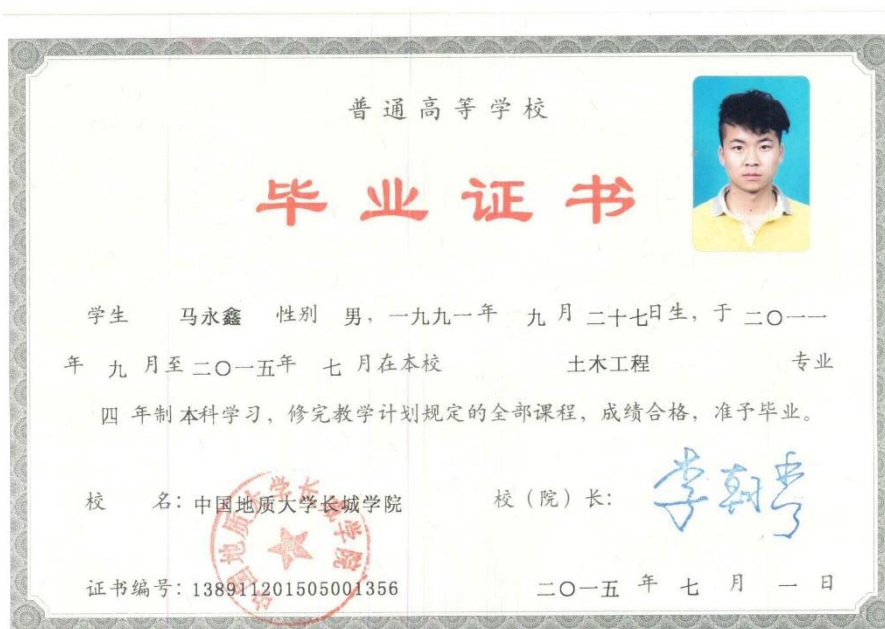 普通高等学校
毕业证书
学生 马永鑫 性别 男，一九九一年 九 月 二十七日生，于 二〇一一
年 九 月至 二〇一五年 七 月在本校 土木工程 专业
四 年制 本科学习，修完教学计划规定的全部课程，成绩合格，准予毕业。
校 名：中国地质大学长城学院
中国地质大学长城学院
校（院）长：
证书编号：138911201505001356
二〇一五 年 七 月 一 日